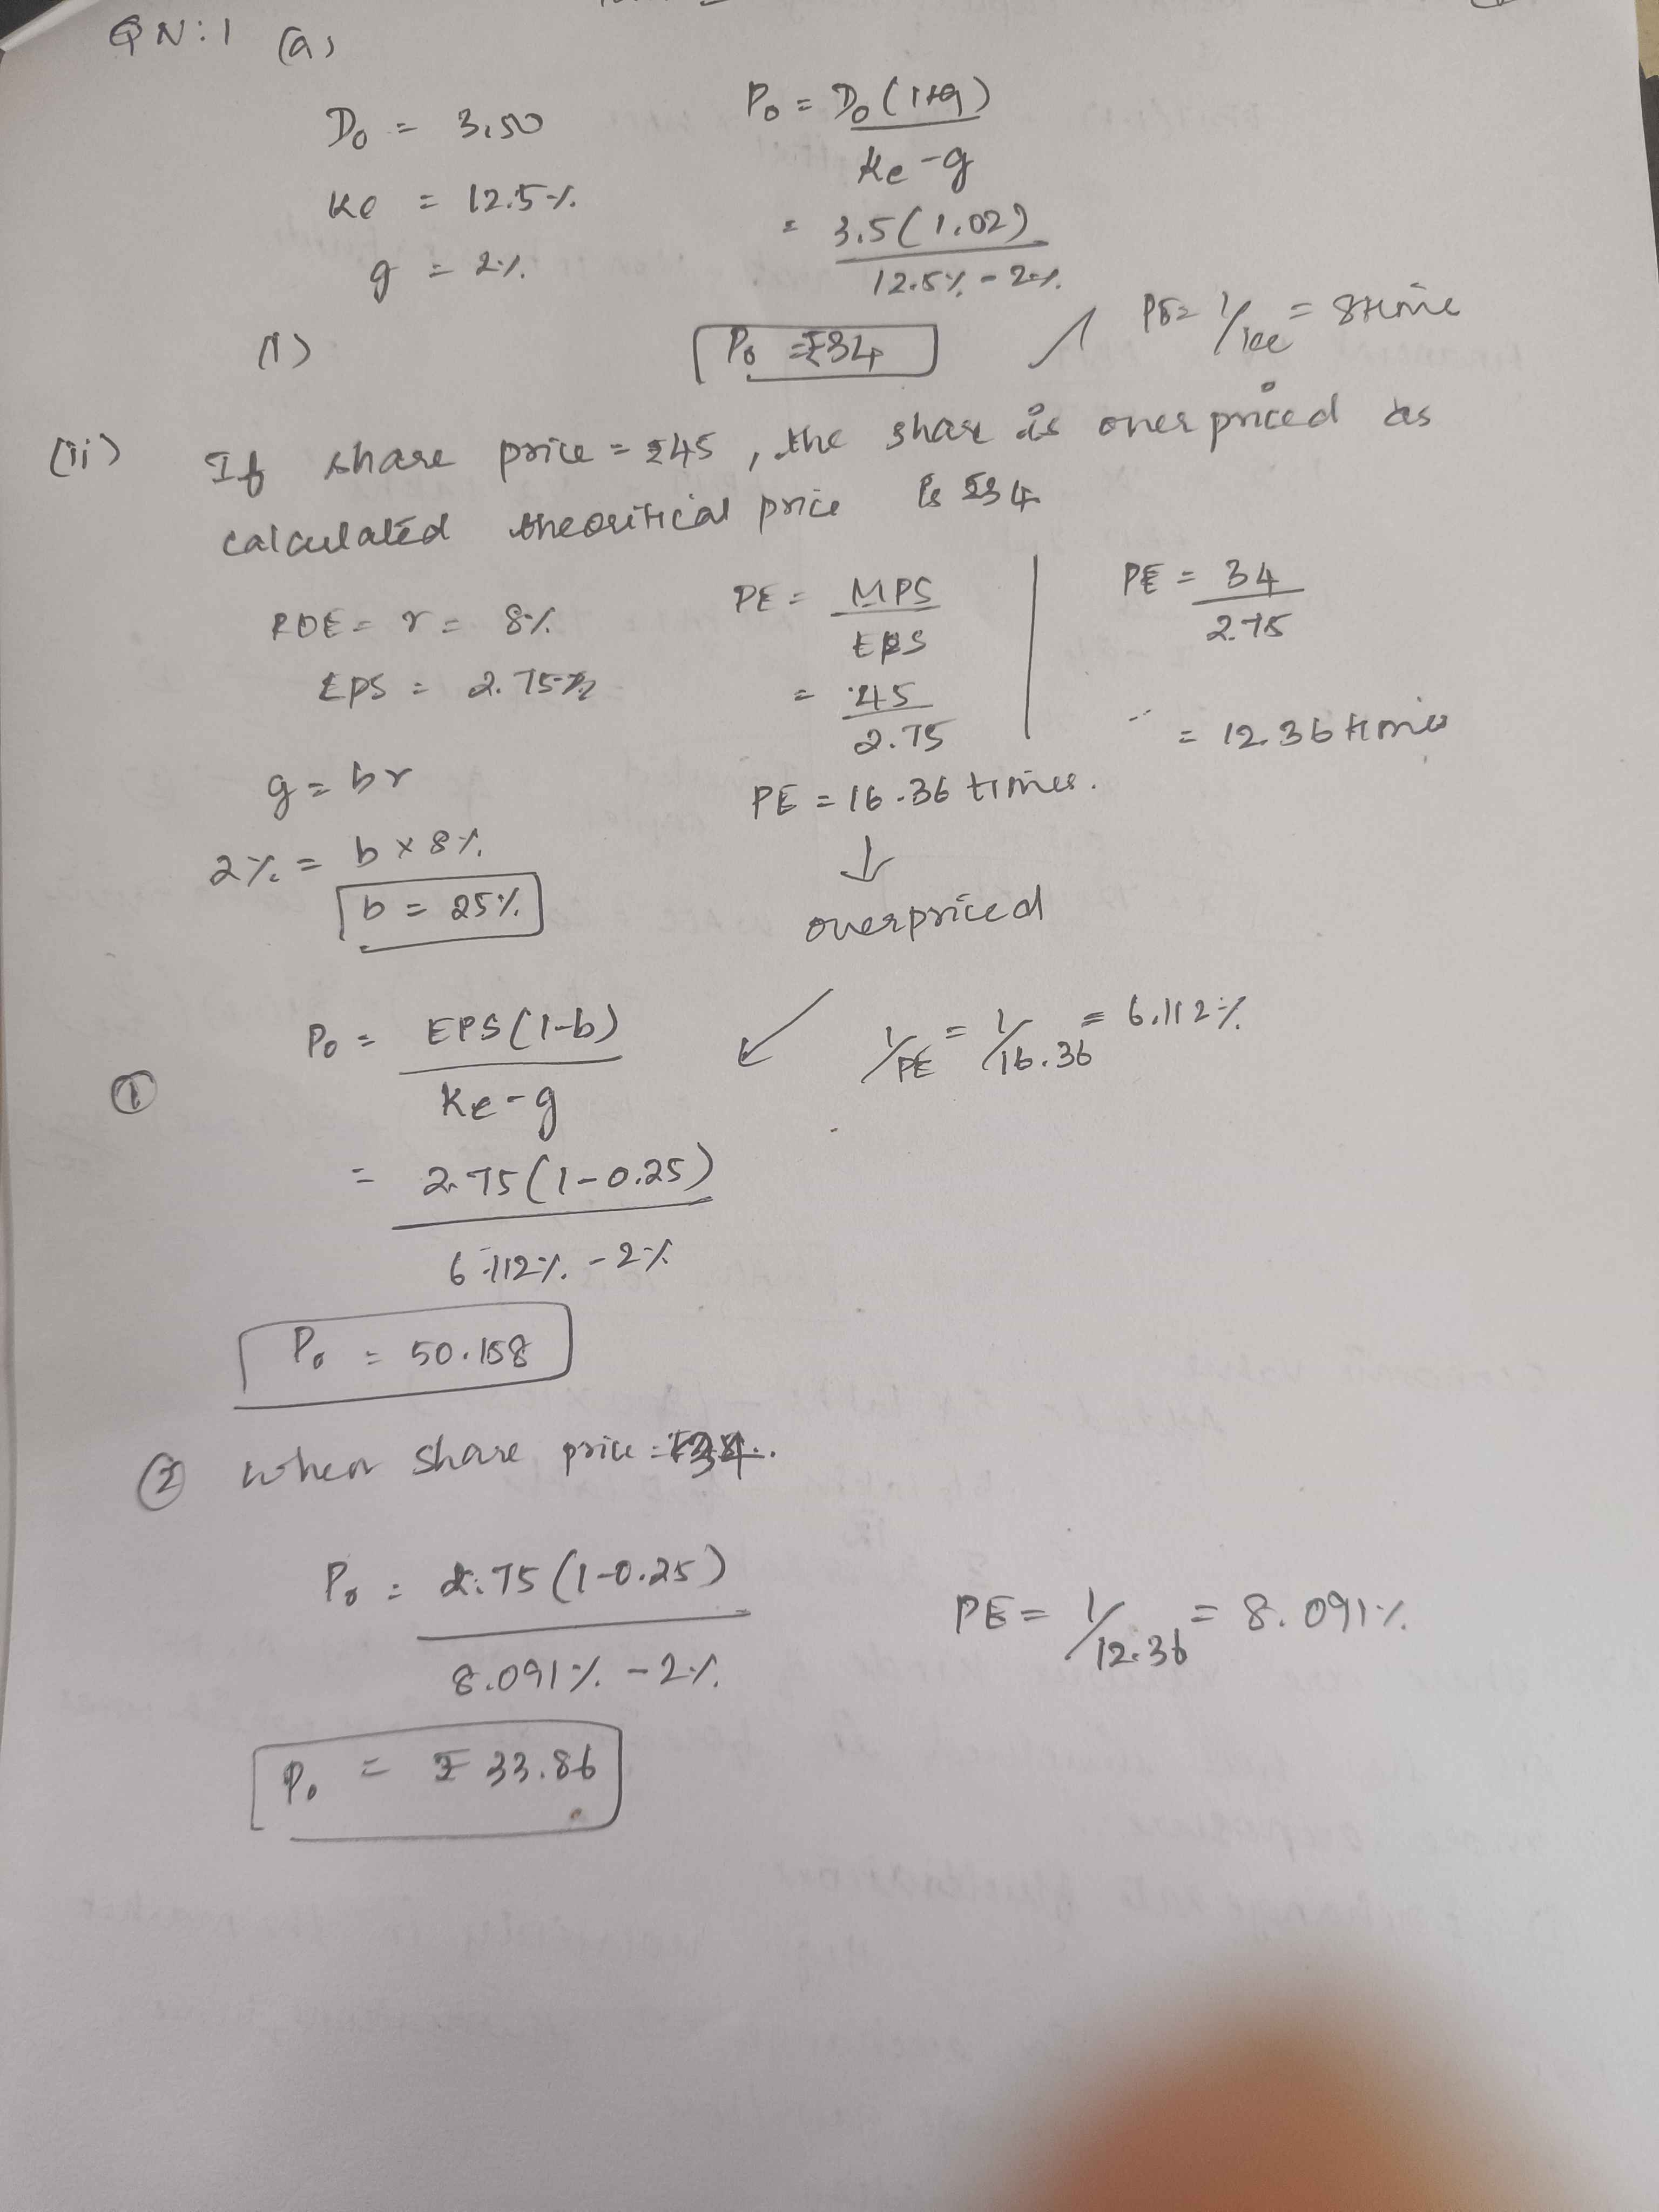 QN:1 (a)
D₀ = 3.50
Ke = 12.5%
g = 2%
P₀ = D₀(1+g)
Ke-g
= 3.5(1.02)
12.5% - 2%
(i)
P₀ = ₹34
PE = 1/Ke = 8 time
(ii) If share price = ₹45, the share is overpriced as
calculated theoritical price is ₹34
ROE = r = 8%
EPS = 2.75
g = br
2% = b × 8%
b = 25%
PE = MPS
EPS
= 45
2.75
PE = 16.36 times.
↓
overpriced
PE = 34
2.75
= 12.36 times
① P₀ = EPS(1-b)
Ke-g
1/PE = 1/16.36 = 6.112%
= 2.75(1-0.25)
6.112% - 2%
P₀ = 50.158
② When share price = ₹34.
P₀ = 2.75(1-0.25)
8.091% - 2%
PE = 1/12.36 = 8.091%
P₀ = ₹33.86